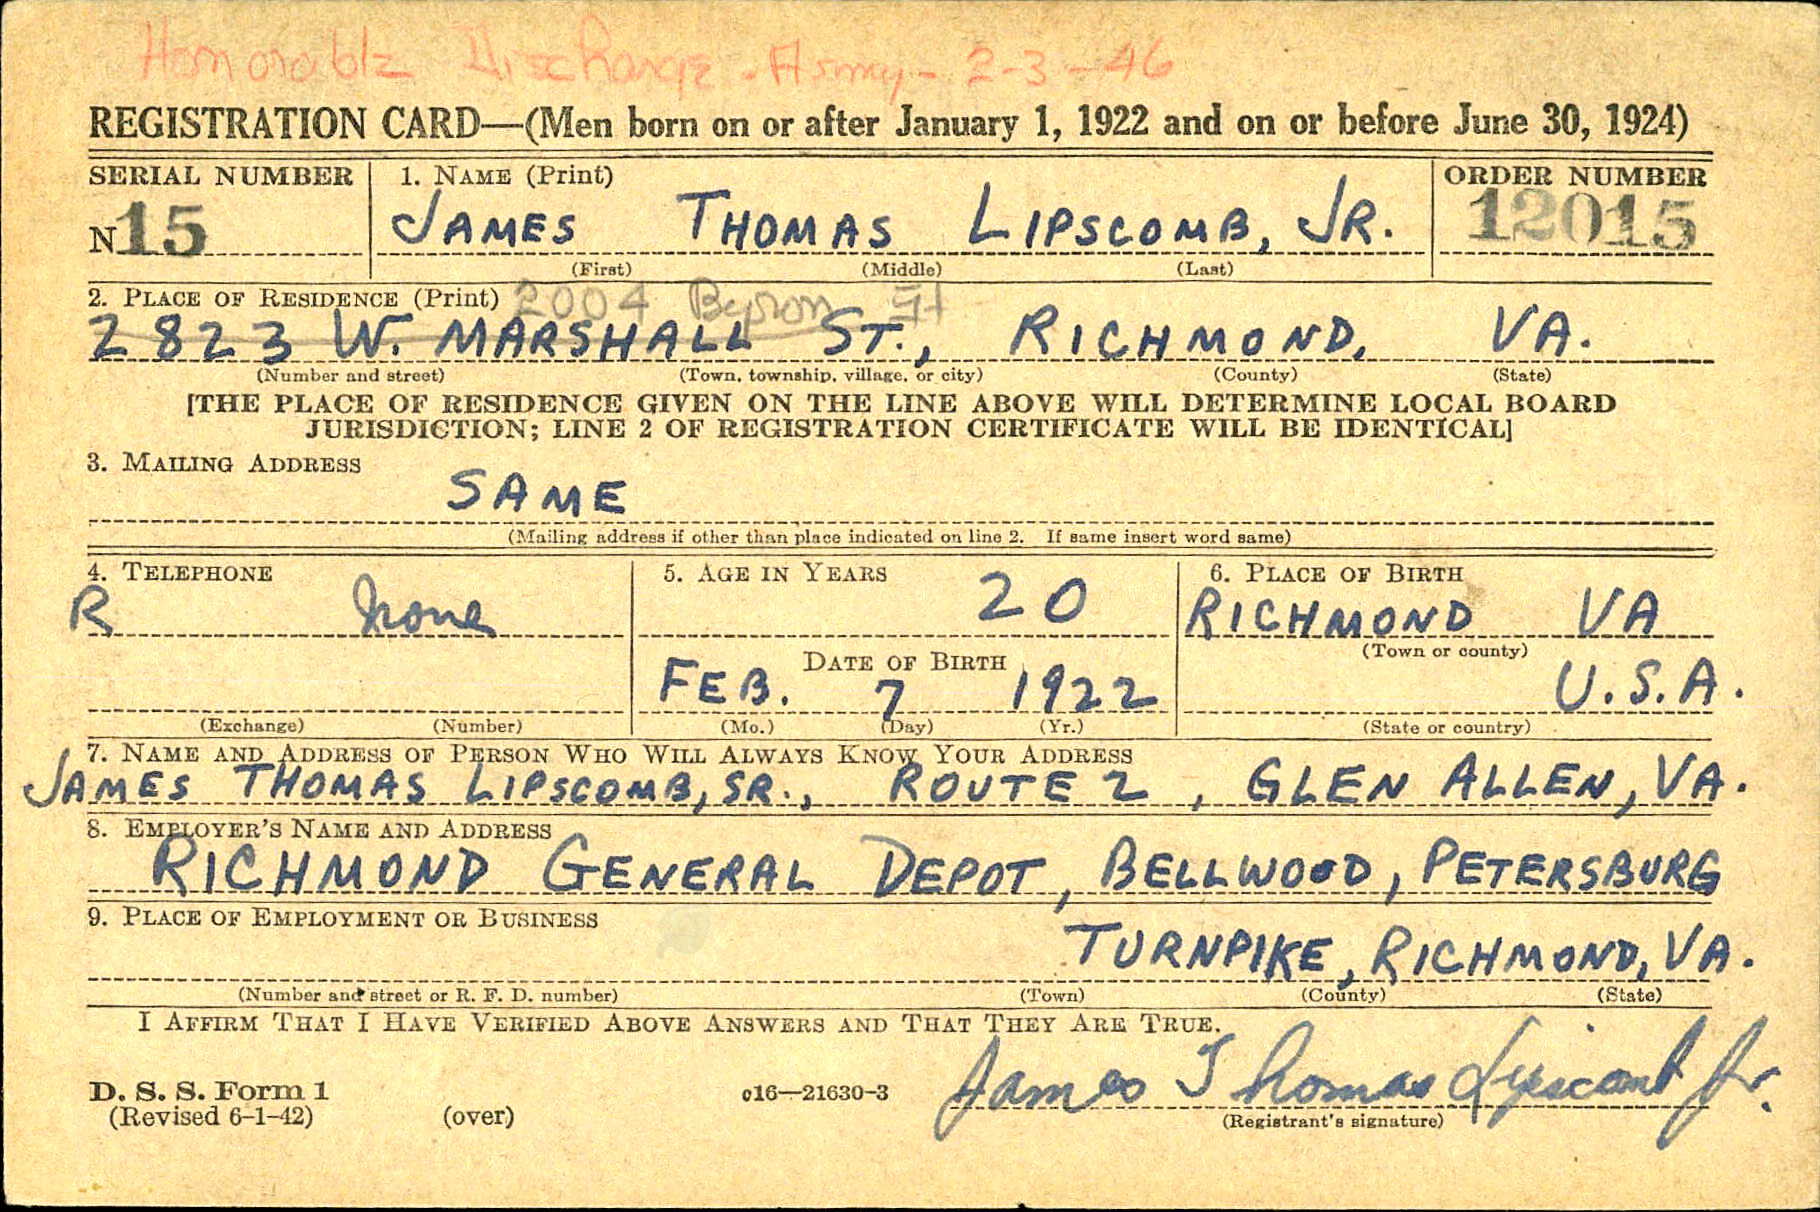 Honorable Discharge - Army - 2-3-46
REGISTRATION CARD—(Men born on or after January 1, 1922 and on or before June 30, 1924)
SERIAL NUMBER 1. NAME (Print) ORDER NUMBER
N 15 JAMES THOMAS LIPSCOMB, JR. 12015
(First) (Middle) (Last)
2. PLACE OF RESIDENCE (Print) 2004 Byron St
2823 W. MARSHALL ST., RICHMOND, VA.
(Number and street) (Town, township, village, or city) (County) (State)
[THE PLACE OF RESIDENCE GIVEN ON THE LINE ABOVE WILL DETERMINE LOCAL BOARD
JURISDICTION; LINE 2 OF REGISTRATION CERTIFICATE WILL BE IDENTICAL]
3. MAILING ADDRESS
SAME
(Mailing address if other than place indicated on line 2. If same insert word same)
4. TELEPHONE 5. AGE IN YEARS 6. PLACE OF BIRTH
R None 20 RICHMOND VA
(Town or county)
DATE OF BIRTH
FEB. 7 1922 U.S.A.
(Exchange) (Number) (Mo.) (Day) (Yr.) (State or country)
7. NAME AND ADDRESS OF PERSON WHO WILL ALWAYS KNOW YOUR ADDRESS
JAMES THOMAS LIPSCOMB, SR., ROUTE 2, GLEN ALLEN, VA.
8. EMPLOYER'S NAME AND ADDRESS
RICHMOND GENERAL DEPOT, BELLWOOD, PETERSBURG
9. PLACE OF EMPLOYMENT OR BUSINESS
TURNPIKE, RICHMOND, VA.
(Number and street or R. F. D. number) (Town) (County) (State)
I AFFIRM THAT I HAVE VERIFIED ABOVE ANSWERS AND THAT THEY ARE TRUE.
James Thomas Lipscomb Jr.
D. S. S. Form 1 c16—21630-3
(Revised 6-1-42) (over) (Registrant's signature)